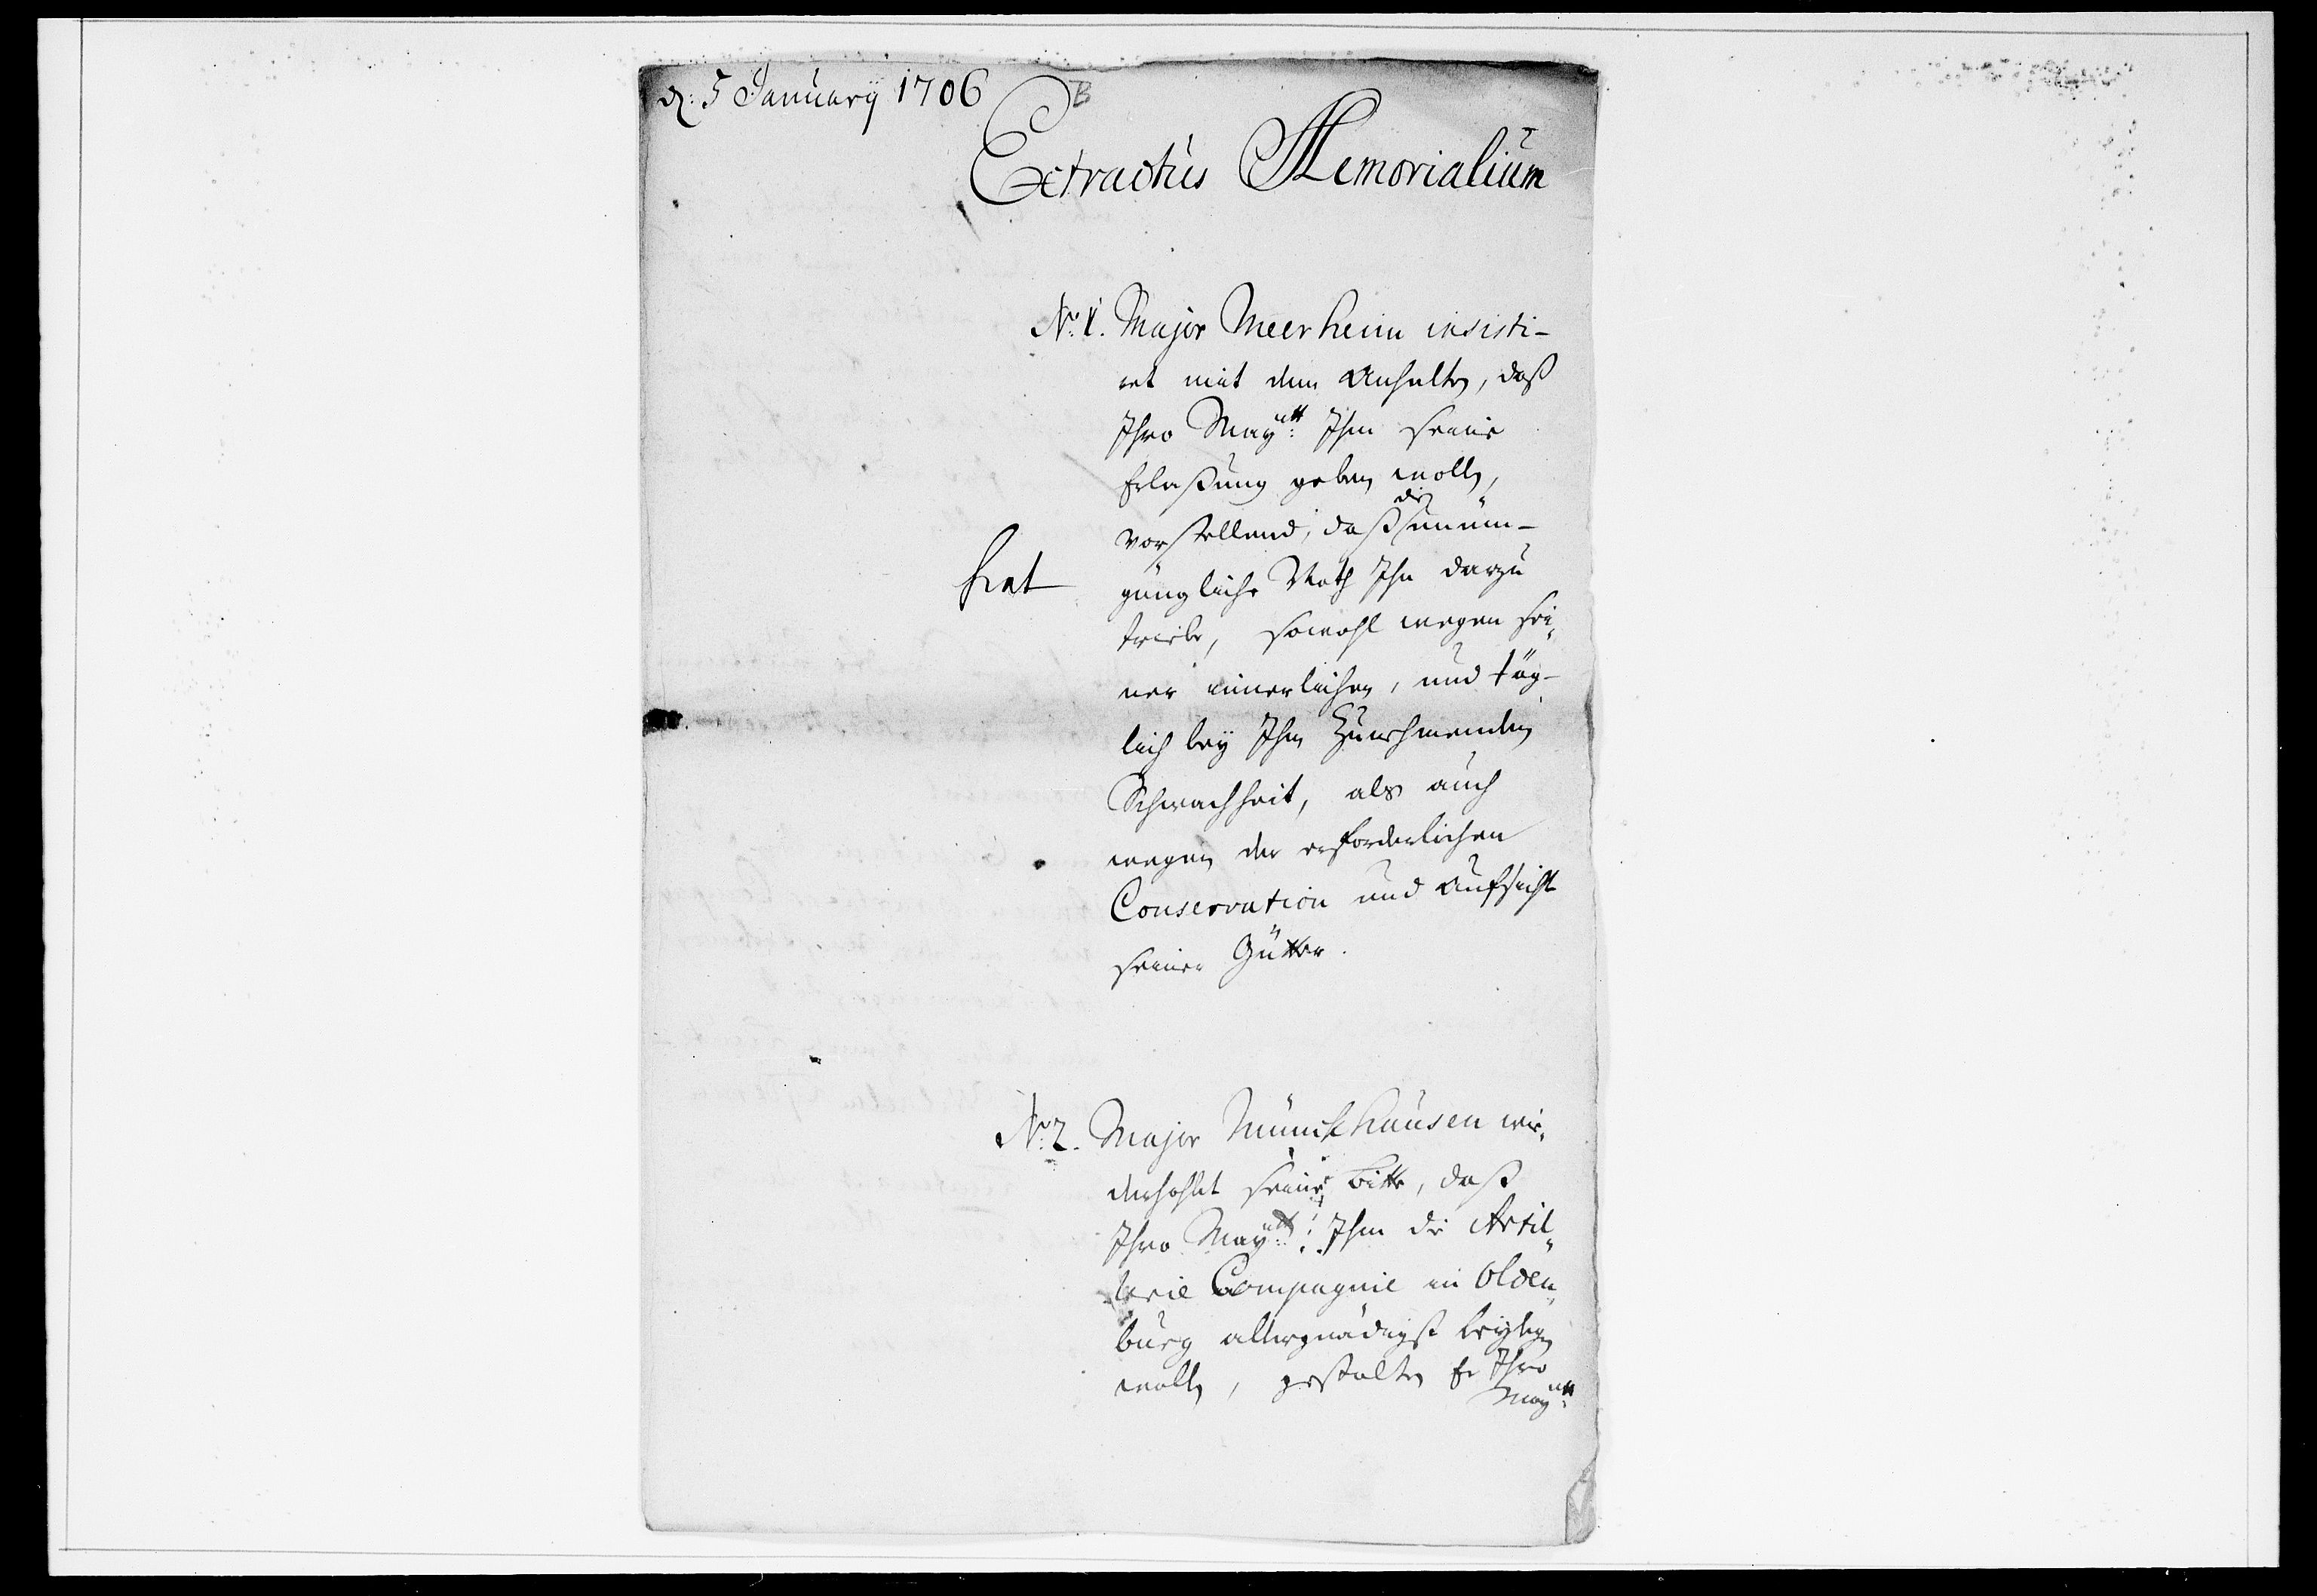 d: 5 January 1706
B
Extractus Memorialium
No. 1. Major Meerheim insisti-
ret mit dem Anhalten, daß
Ihro Maytt: Ihm seine
Erlaßung geben wollen,
vorstellend, daß die unüm-
gängliche Noth Ihn darzu
triebe, sowohl wegen sei-
ner innerlichen, und täg-
lich bey Ihm Zunehmenden
Schwachheit, als auch
wegen der erforderlichen
Conservation und Aufsicht
seiner Gütter.
fiat
No. 2. Major Münchhausen wie-
derhohlet seine Bitte, daß
Ihro Maytt: Ihm die Artil-
lerie Compagnie in Olden-
burg allergnädigst beylegen
wollen, gestalten Er Ihro
Maytt: